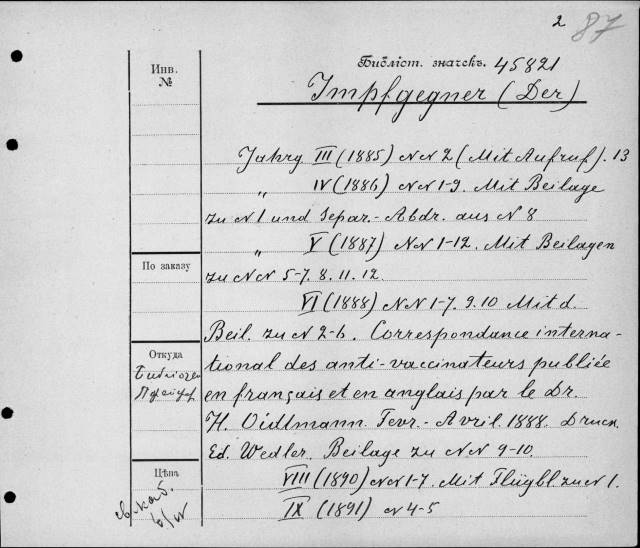 2 87
Библіот. значекъ. 45821
Инв. №
Impfgegner (Der)
Jahrg. III (1885) NN 2 (Mit Aufruf). 13
„ IV (1886) NN 1-9. Mit Beilage
zu N 1 und Separ.-Abdr. aus N 8
„ V (1887) NN 1-12. Mit Beilagen
По заказу
zu NN 5-7. 8. 11. 12.
VI (1888) NN 1-7. 9. 10 Mit d.
Beil. zu N 2-6. Correspondance interna-
Откуда
tional des anti-vaccinateurs publiée
en français et en anglais par le Dr.
H. Oidtmann. Fevr.-Avril. 1888. Druck
Ed. Wedler. Beilage zu NN 9-10.
Цѣна
VIII (1890) NN 1-7. Mit Flügbl. zu N 1.
IX (1891) N 4-5